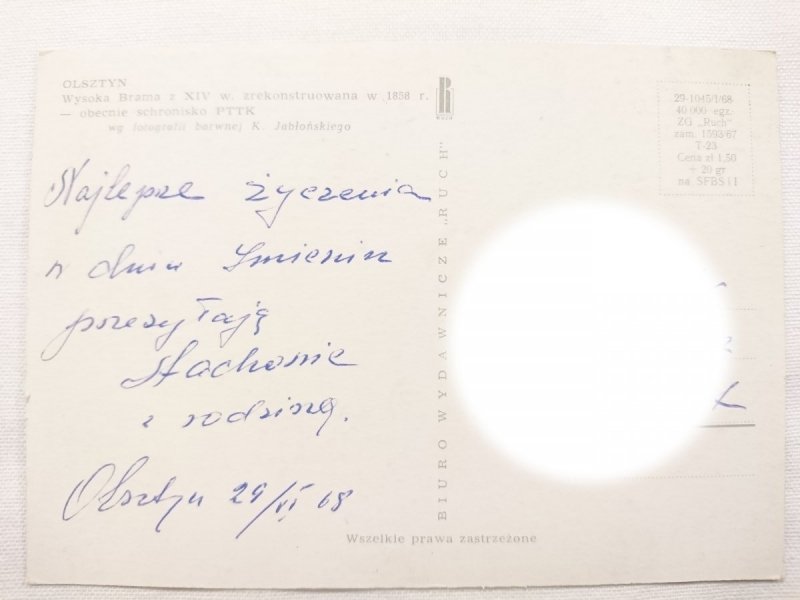 OLSZTYN
Wysoka Brama z XIV w. zrekonstruowana w 1858 r.
— obecnie schronisko PTTK
wg fotografii barwnej K. Jabłońskiego
Najlepsze życzenia
w dniu Imienin
przesyłają
Stachowie
z rodziną.
Olsztyn 29/VI 68
BIURO WYDAWNICZE „RUCH"
RUCH
29-1045/I/68
40.000 egz.
ZG „Ruch"
zam. 1593/67
T-23
Cena zł 1,50
+ 20 gr
na SFBS i I
Wszelkie prawa zastrzeżone